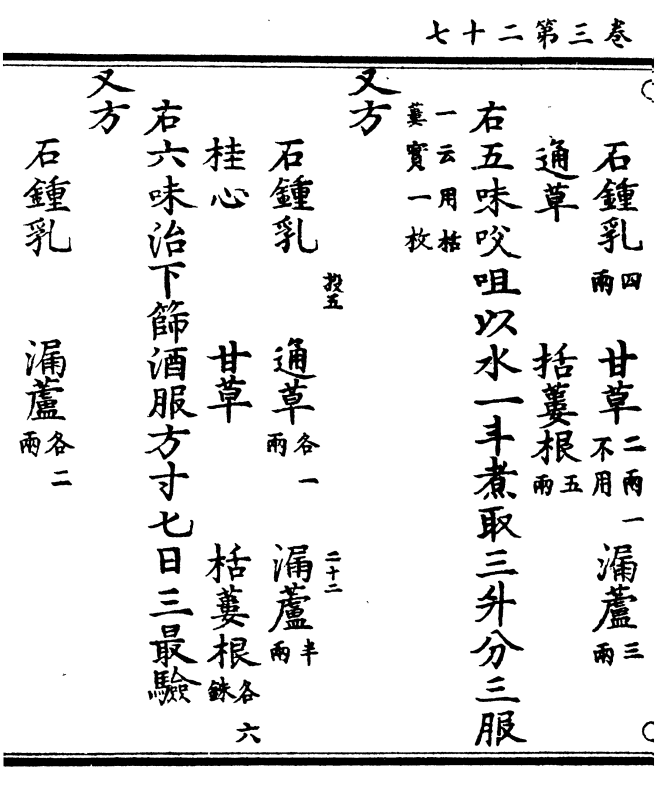 卷三第二十七
石鍾乳四兩 甘草二兩一不用 漏蘆三兩
通草 括蔞根五兩
右五味咬咀以水一斗煮取三升分三服
一云用栝蔞實一枚
又方
投五 二十二
石鍾乳 通草各一兩 漏蘆半兩
桂心 甘草 栝蔞根各六銖
右六味治下篩酒服方寸七日三最驗
又方
石鍾乳 漏蘆各二兩